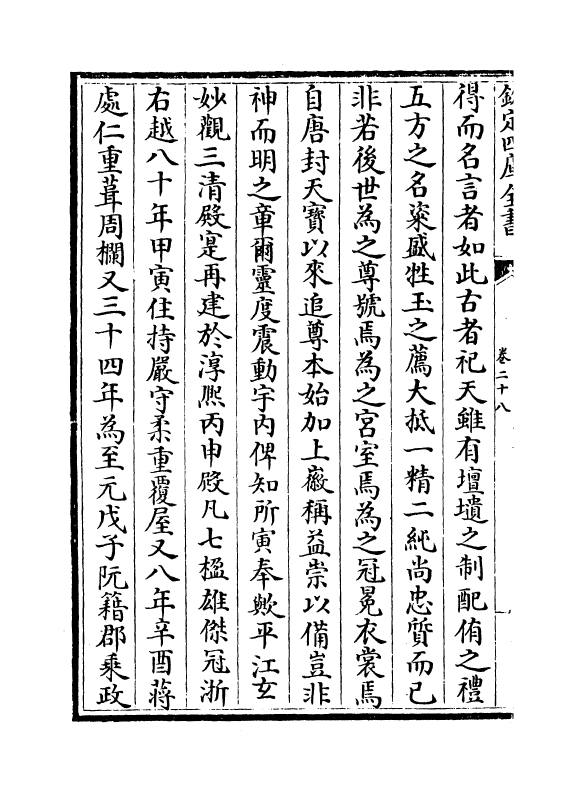 欽定四庫全書
卷二十八
得而名言者如此古者祀天雖有壇壝之制配侑之禮
五方之名粢盛牲玉之薦大抵一精二純尚忠質而已
非若後世為之尊號焉為之宮室焉為之冠冕衣裳焉
自唐封天寶以來追尊本始加上徽稱益崇以備豈非
神而明之章爾靈度震動宇內俾知所寅奉歟平江玄
妙觀三清殿寔再建於淳熈丙申殿凡七楹雄傑冠浙
右越八十年甲寅住持嚴守柔重覆屋又八年辛酉蔣
處仁重葺周欄又三十四年為至元戊子阮籍郡乘政